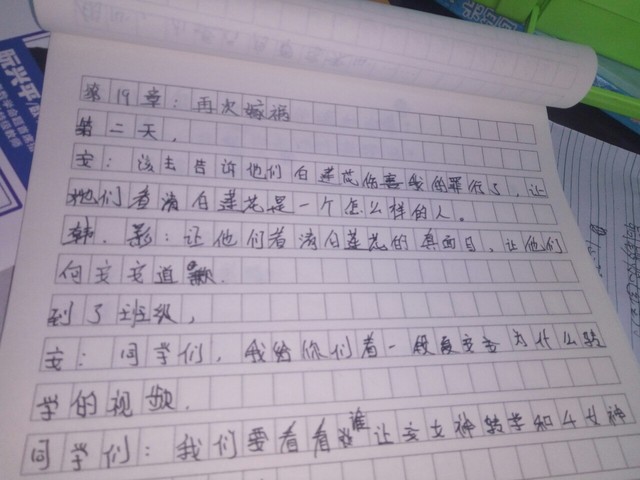 第19章:再次嫁祸
第二天,
安:该去告诉他们白莲花伤害我的罪行了,让
她们看清白莲花是一个怎么样的人。
韩、影:让他们看清白莲花的真面目,让他们
向安安道歉.
到了班级,
安:同学们,我给你们看一段夏安安为什么转
学的视频.
同学们:我们要看看谁让安女神转学和4女神